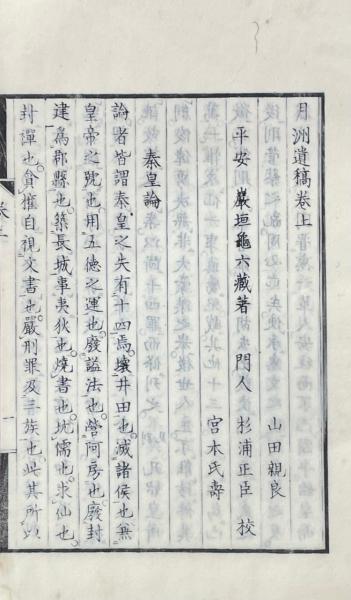 月洲遺稿卷上
山田親良
平安 巖垣龜六藏著 門人 杉浦正臣 校
宮木氏壽
秦皇論
論者皆謂秦皇之失有十四焉壞井田也滅諸侯也無
皇帝之號也用五德之運也廢諡法也營阿房也廢封
建爲郡縣也築長城事夷狄也燒書也坑儒也求仙也
封禪也貪權自視文書也嚴刑罪及三族也此其所以